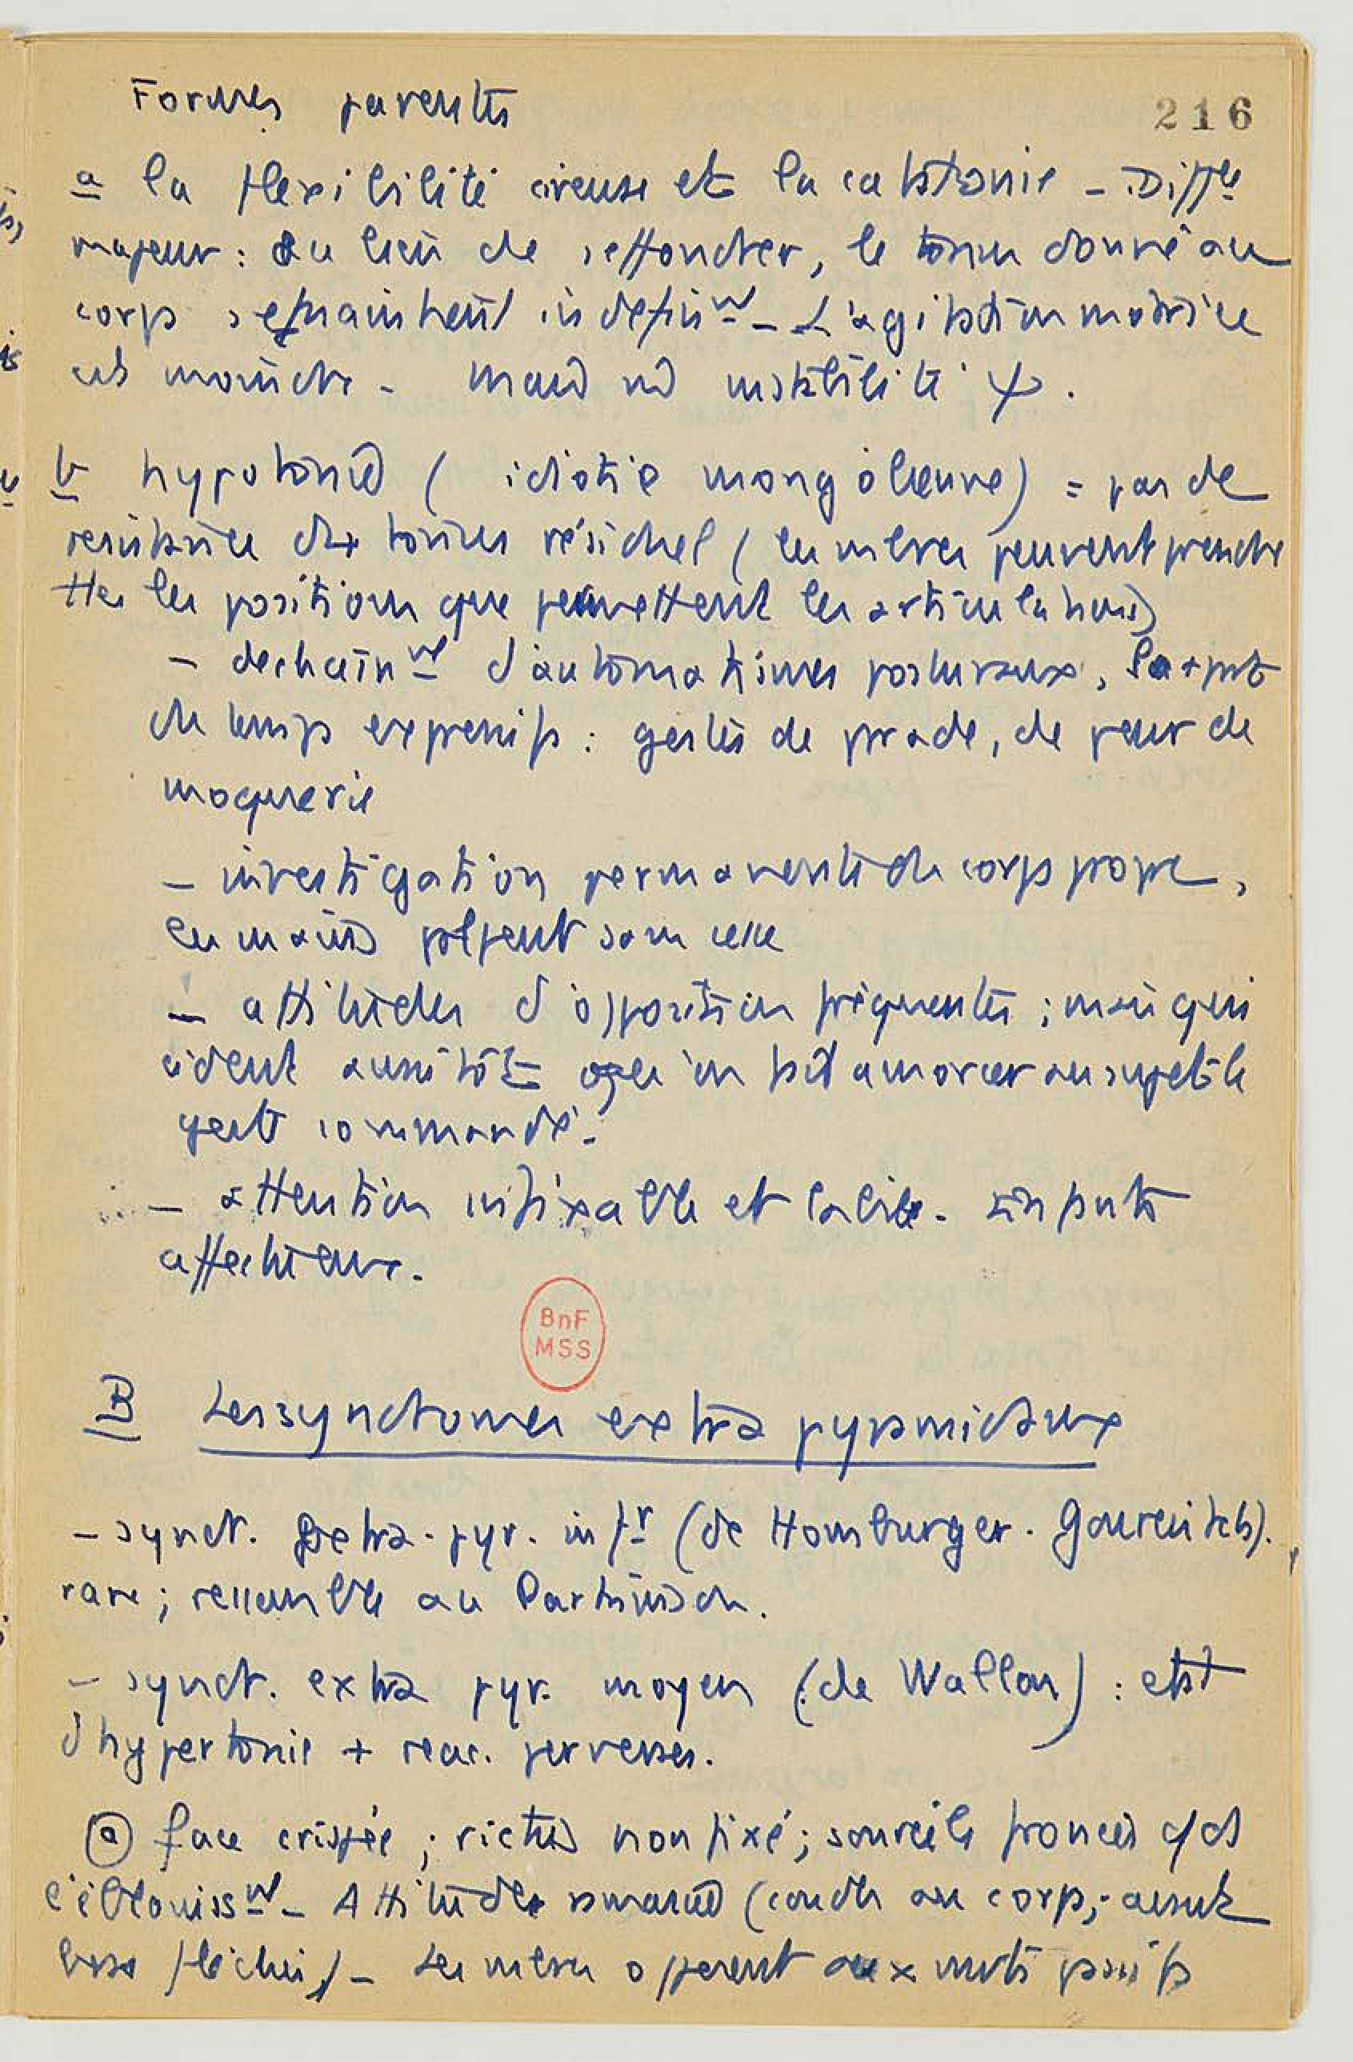 Formes parentes
216
a la flexibilité cireuse et la catatonie - Diffce
majeur : au lieu de s'effondrer, le tonus donné au
corps se maintient indefinmt - L'agitation motrice
est moindre - mais instabilité
b hypotonie ( idiotie mongolienne) = pas de
resistance du tonus résiduel ( les mbres peuvent prendre
ttes les positions que permettent les articulations)
- dechainmt d'automatismes posturaux, la + part
du temps expressifs : gestes de parade, de peur de
moquerie
- investigation permanente du corps propre,
les mains palpent sans cesse
- attitudes d'opposition fréquentes ; mais qui
cèdent aussitôt que l'on fait amorcer au sujet le
geste commandé.
- attention infixable et labile. Emprunts
affectueux.
BnF
MSS
B Les syndromes extra pyramidaux
- synd. extra-pyr. infr (de Homburger. Gourevitch).
rare ; ressemble au Parkinson.
- synd. extra pyr. moyen (de Wallon) : etat
d'hypertonie + reac. perverses.
(a) face crispée ; rictus non fixé ; sourcils froncés cô ds
l'éblouissmt - Attitude ramassée (coudes au corps ; avant
bras fléchis) - Les mbres opposent aux mvts passifs